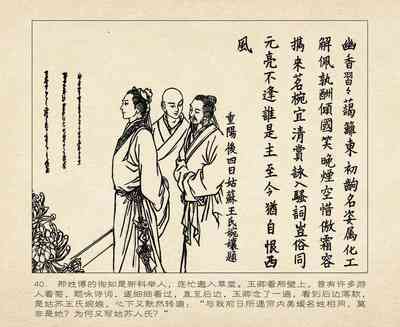 幽香習々藹籬東初韵名姿属化工
解佩孰酬傾國笑晚煙空惜傲霜容
擕來茗椀宜清賞詠入騷詞豈俗同
元亮不逢誰是主至今猶自恨西
風
重陽後四日姑蘇王氏婉孃題
40. 那姓博的衙知是新科举人，连忙邀入草堂。玉卿看那壁上，曾有许多游
人看菊，题咏诗词，逐细细看过，直至后边，玉卿念了一遍，看到后边落款，
是姑苏王氏婉娘。心下又默然转道："与我前日所遇席内美媛名姓相同，莫
非是她？为何又写姑苏人氏？"